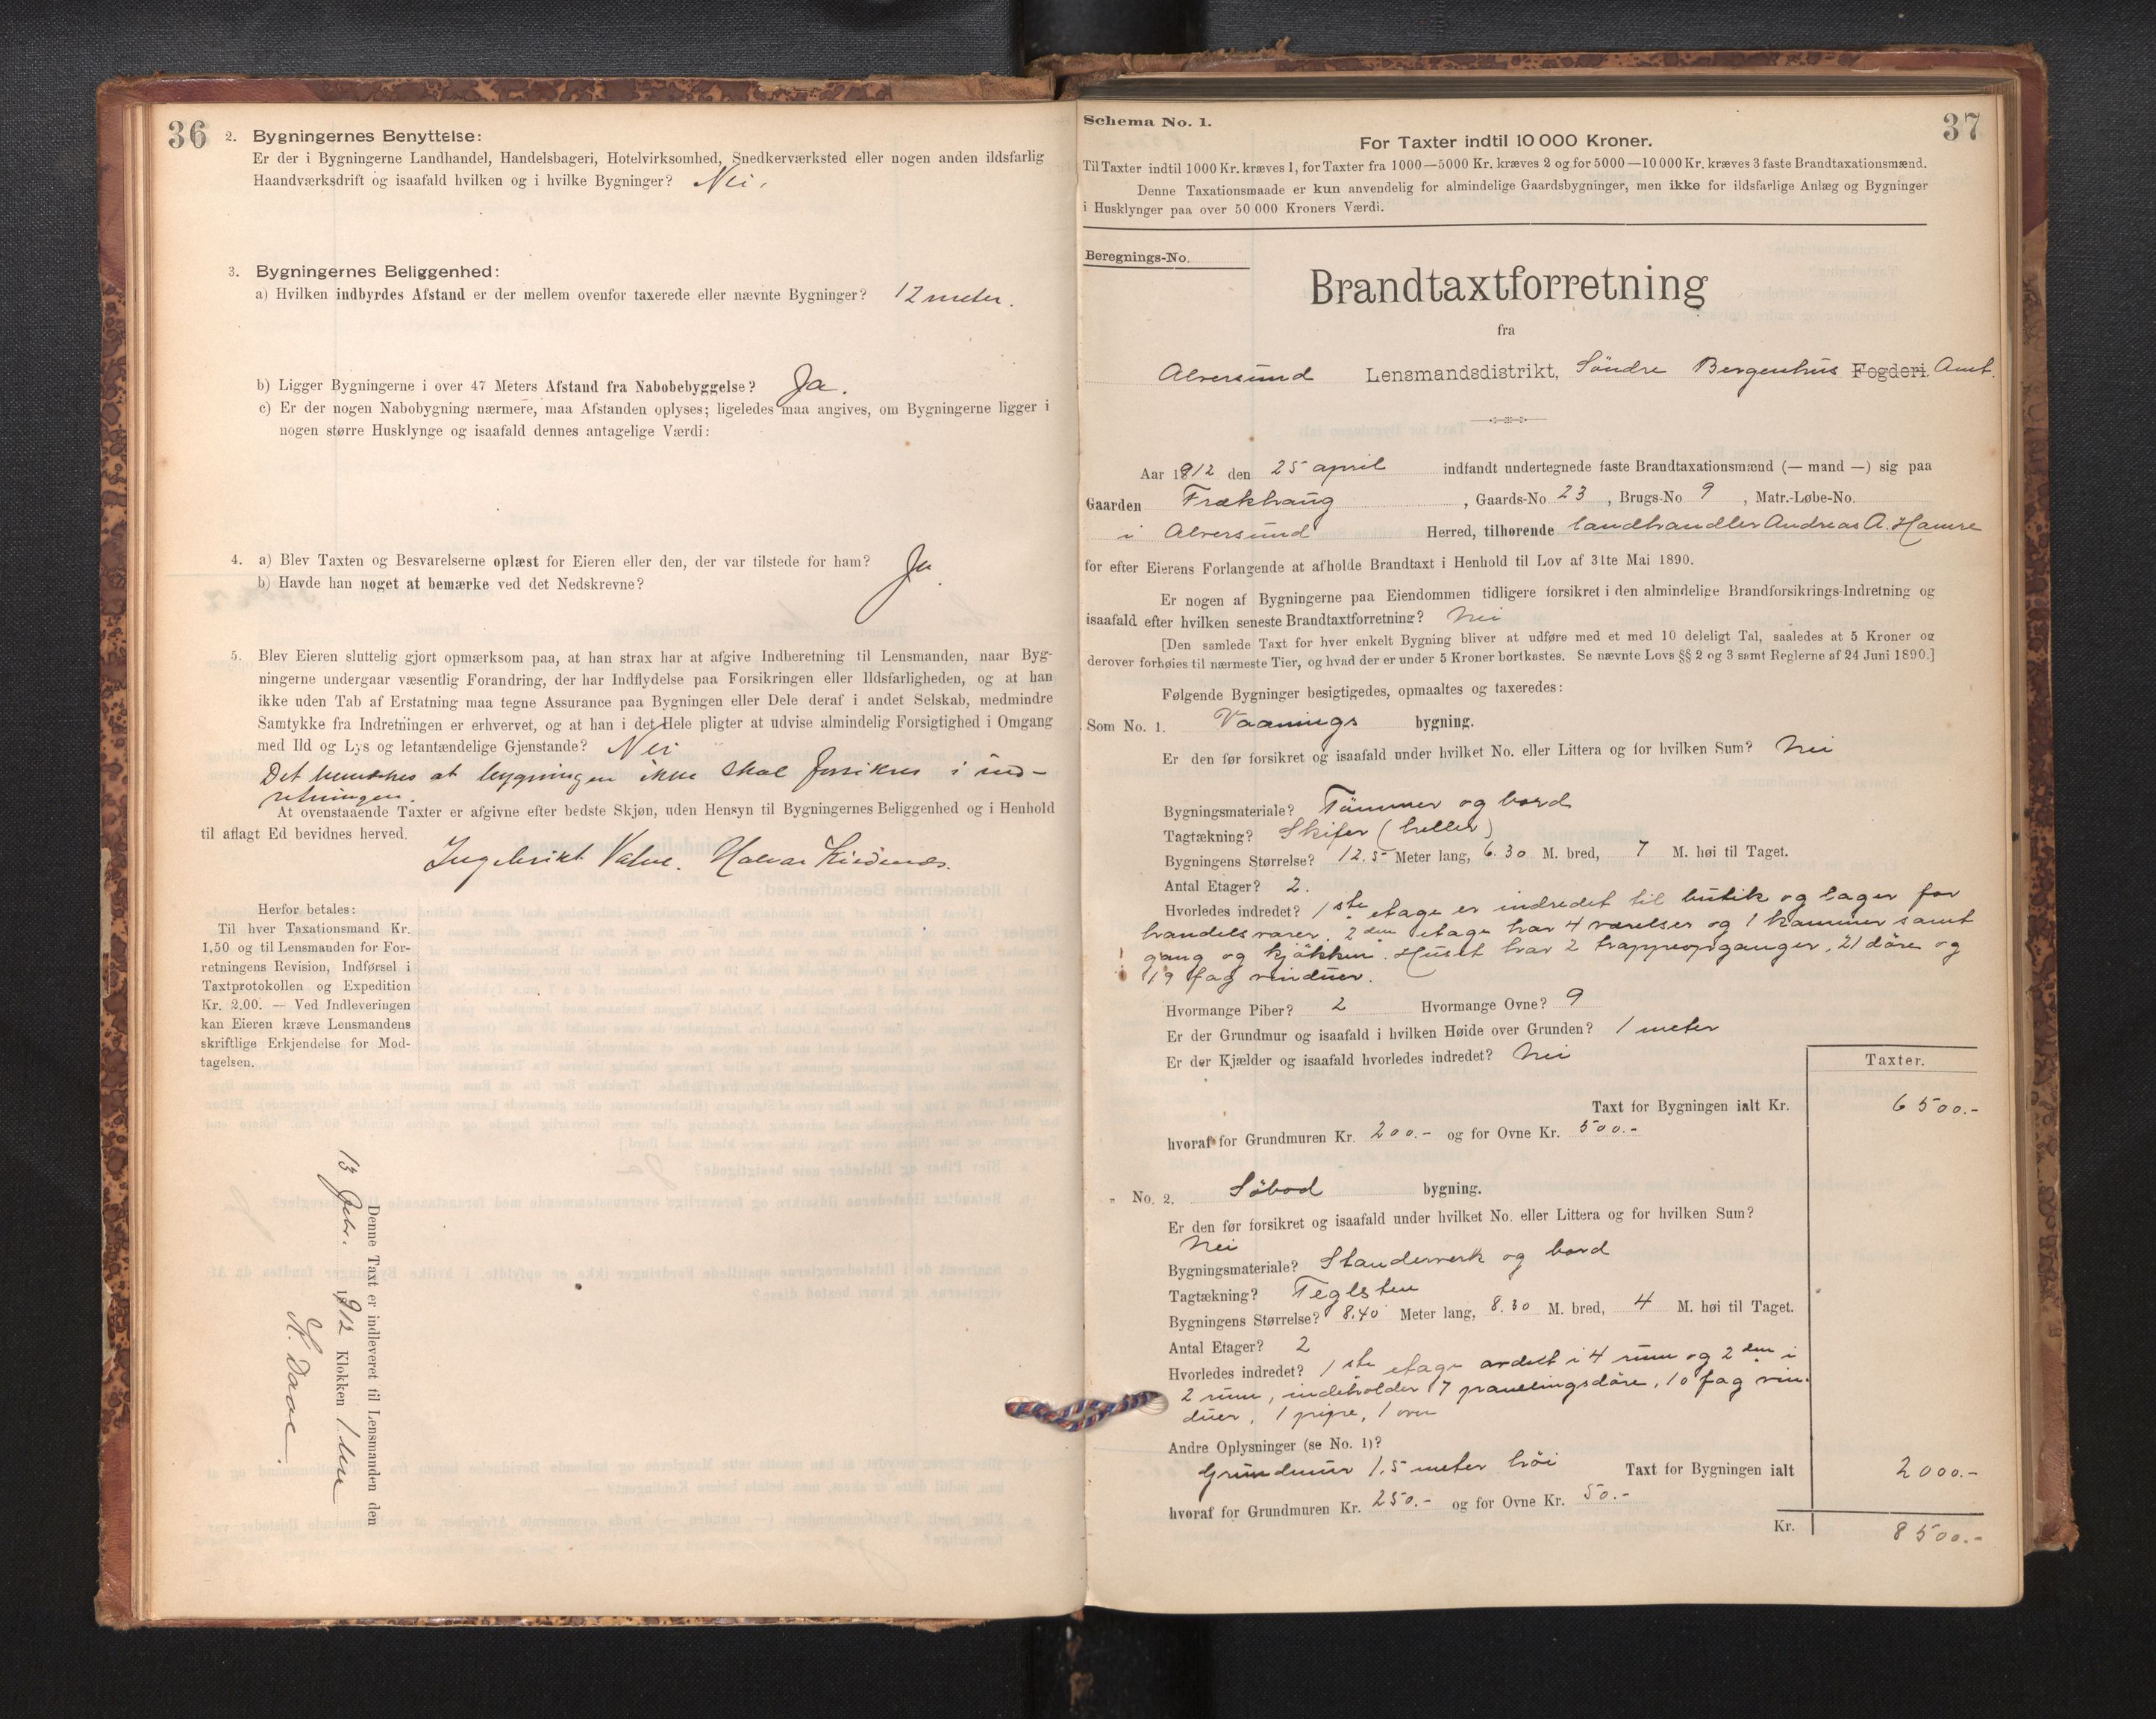 36
2. Bygningernes Benyttelse:
Er der i Bygningerne Landhandel, Handelsbageri, Hotelvirksomhed, Snedkerværksted eller nogen anden ildsfarlig
Haandværksdrift og isaafald hvilken og i hvilke Bygninger? Nei.
3. Bygningernes Beliggenhed:
a) Hvilken indbyrdes Afstand er der mellem ovenfor taxerede eller nævnte Bygninger? 12 meter.
b) Ligger Bygningerne i over 47 Meters Afstand fra Nabobebyggelse? Ja.
c) Er der nogen Nabobygning nærmere, maa Afstanden oplyses; ligeledes maa angives, om Bygningerne ligger i
nogen større Husklynge og isaafald dennes antagelige Værdi:
4. a) Blev Taxten og Besvarelserne oplæst for Eieren eller den, der var tilstede for ham? Ja
b) Havde han noget at bemærke ved det Nedskrevne? Ja.
5. Blev Eieren sluttelig gjort opmærksom paa, at han strax har at afgive Indberetning til Lensmanden, naar Byg-
ningerne undergaar væsentlig Forandring, der har Indflydelse paa Forsikringen eller Ildsfarligheden, og at han
ikke uden Tab af Erstatning maa tegne Assurance paa Bygningen eller Dele deraf i andet Selskab, medmindre
Samtykke fra Indretningen er erhvervet, og at han i det Hele pligter at udvise almindelig Forsigtighed i Omgang
med Ild og Lys og letantændelige Gjenstande? Nei
Det bemærkes at bygningen ikke skal forsikres i ind-
retningen.
At ovenstaaende Taxter er afgivne efter bedste Skjøn, uden Hensyn til Bygningernes Beliggenhed og i Henhold
til aflagt Ed bevidnes herved.
Ingebrikt Halvar
Herfor betales:
Til hver Taxationsmand Kr.
1,50 og til Lensmanden for For-
retningens Revision, Indførsel i
Taxtprotokollen og Expedition
Kr. 2,00. — Ved Indleveringen
kan Eieren kræve Lensmandens
skriftlige Erkjendelse for Mod-
tagelsen.
Denne Taxt er indleveret til Lensmanden den
13 Febr. 1912 Klokken 1
Daae.
37
Schema No. 1.
For Taxter indtil 10 000 Kroner.
Til Taxter indtil 1000 Kr. kræves 1, for Taxter fra 1000—5000 Kr. kræves 2 og for 5000—10 000 Kr. kræves 3 faste Brandtaxationsmænd.
Denne Taxationsmaade er kun anvendelig for almindelige Gaardsbygninger, men ikke for ildsfarlige Anlæg og Bygninger
i Husklynger paa over 50 000 Kroners Værdi.
Beregnings-No.
Brandtaxtforretning
fra
Alversund Lensmandsdistrikt, Söndre Bergenhus Fogderi. Amt.
Aar 1912 den 25 april indfandt undertegnede faste Brandtaxationsmænd (— mand —) sig paa
Gaarden Frækhaug, Gaards-No 23, Brugs-No 9, Matr.-Løbe-No.
i Alversund Herred, tilhørende landhandler Andreas A. Hamre
for efter Eierens Forlangende at afholde Brandtaxt i Henhold til Lov af 31te Mai 1890.
Er nogen af Bygningerne paa Eiendommen tidligere forsikret i den almindelige Brandforsikrings-Indretning og
isaafald efter hvilken seneste Brandtaxtforretning? Nei
[Den samlede Taxt for hver enkelt Bygning bliver at udføre med et med 10 deleligt Tal, saaledes at 5 Kroner og
derover forhøies til nærmeste Tier, og hvad der er under 5 Kroner bortkastes. Se nævnte Lovs §§ 2 og 3 samt Reglerne af 24 Juni 1890.]
Følgende Bygninger besigtigedes, opmaaltes og taxeredes:
Som No. 1. Vaanings bygning.
Er den før forsikret og isaafald under hvilket No. eller Littera og for hvilken Sum? Nei
Bygningsmateriale? Tömmer og bord
Tagtækning? Skifer (heller)
Bygningens Størrelse? 12.5 Meter lang, 6.30 M. bred, 7 M. høi til Taget.
Antal Etager? 2.
Hvorledes indredet? 1ste etage er indredet til butik og lager for
handelsvarer. 2den etage har 4 værelser og 1 kammer samt
gang og kjökken. Huset har 2 trappeopganger, 21 döre og
19 fag vinduer.
Hvormange Piber? 2 Hvormange Ovne? 9
Er der Grundmur og isaafald i hvilken Høide over Grunden? 1 meter
Er der Kjælder og isaafald hvorledes indredet? Nei
Taxter.
Taxt for Bygningen ialt Kr. 6500.-
hvoraf for Grundmuren Kr. 200.- og for Ovne Kr. 500.-
" No. 2. Söbod bygning.
Er den før forsikret og isaafald under hvilket No. eller Littera og for hvilken Sum?
Nei
Bygningsmateriale? Standerverk og bord
Tagtækning? Teglsten
Bygningens Størrelse? 8.40 Meter lang, 8.30 M. bred, 4 M. høi til Taget.
Antal Etager? 2
Hvorledes indredet? 1ste etage avdelt i 4 rum og 2den i
2 rum, indeholder 17 panelingsdöre, 10 fag vin-
duer, 1 pipe, 1 ovn
Andre Oplysninger (se No. 1)?
Grundmur 1,5 meter höi Taxt for Bygningen ialt 2000.-
hvoraf for Grundmuren Kr. 250.- og for Ovne Kr. 50.-
Kr. 8500.-